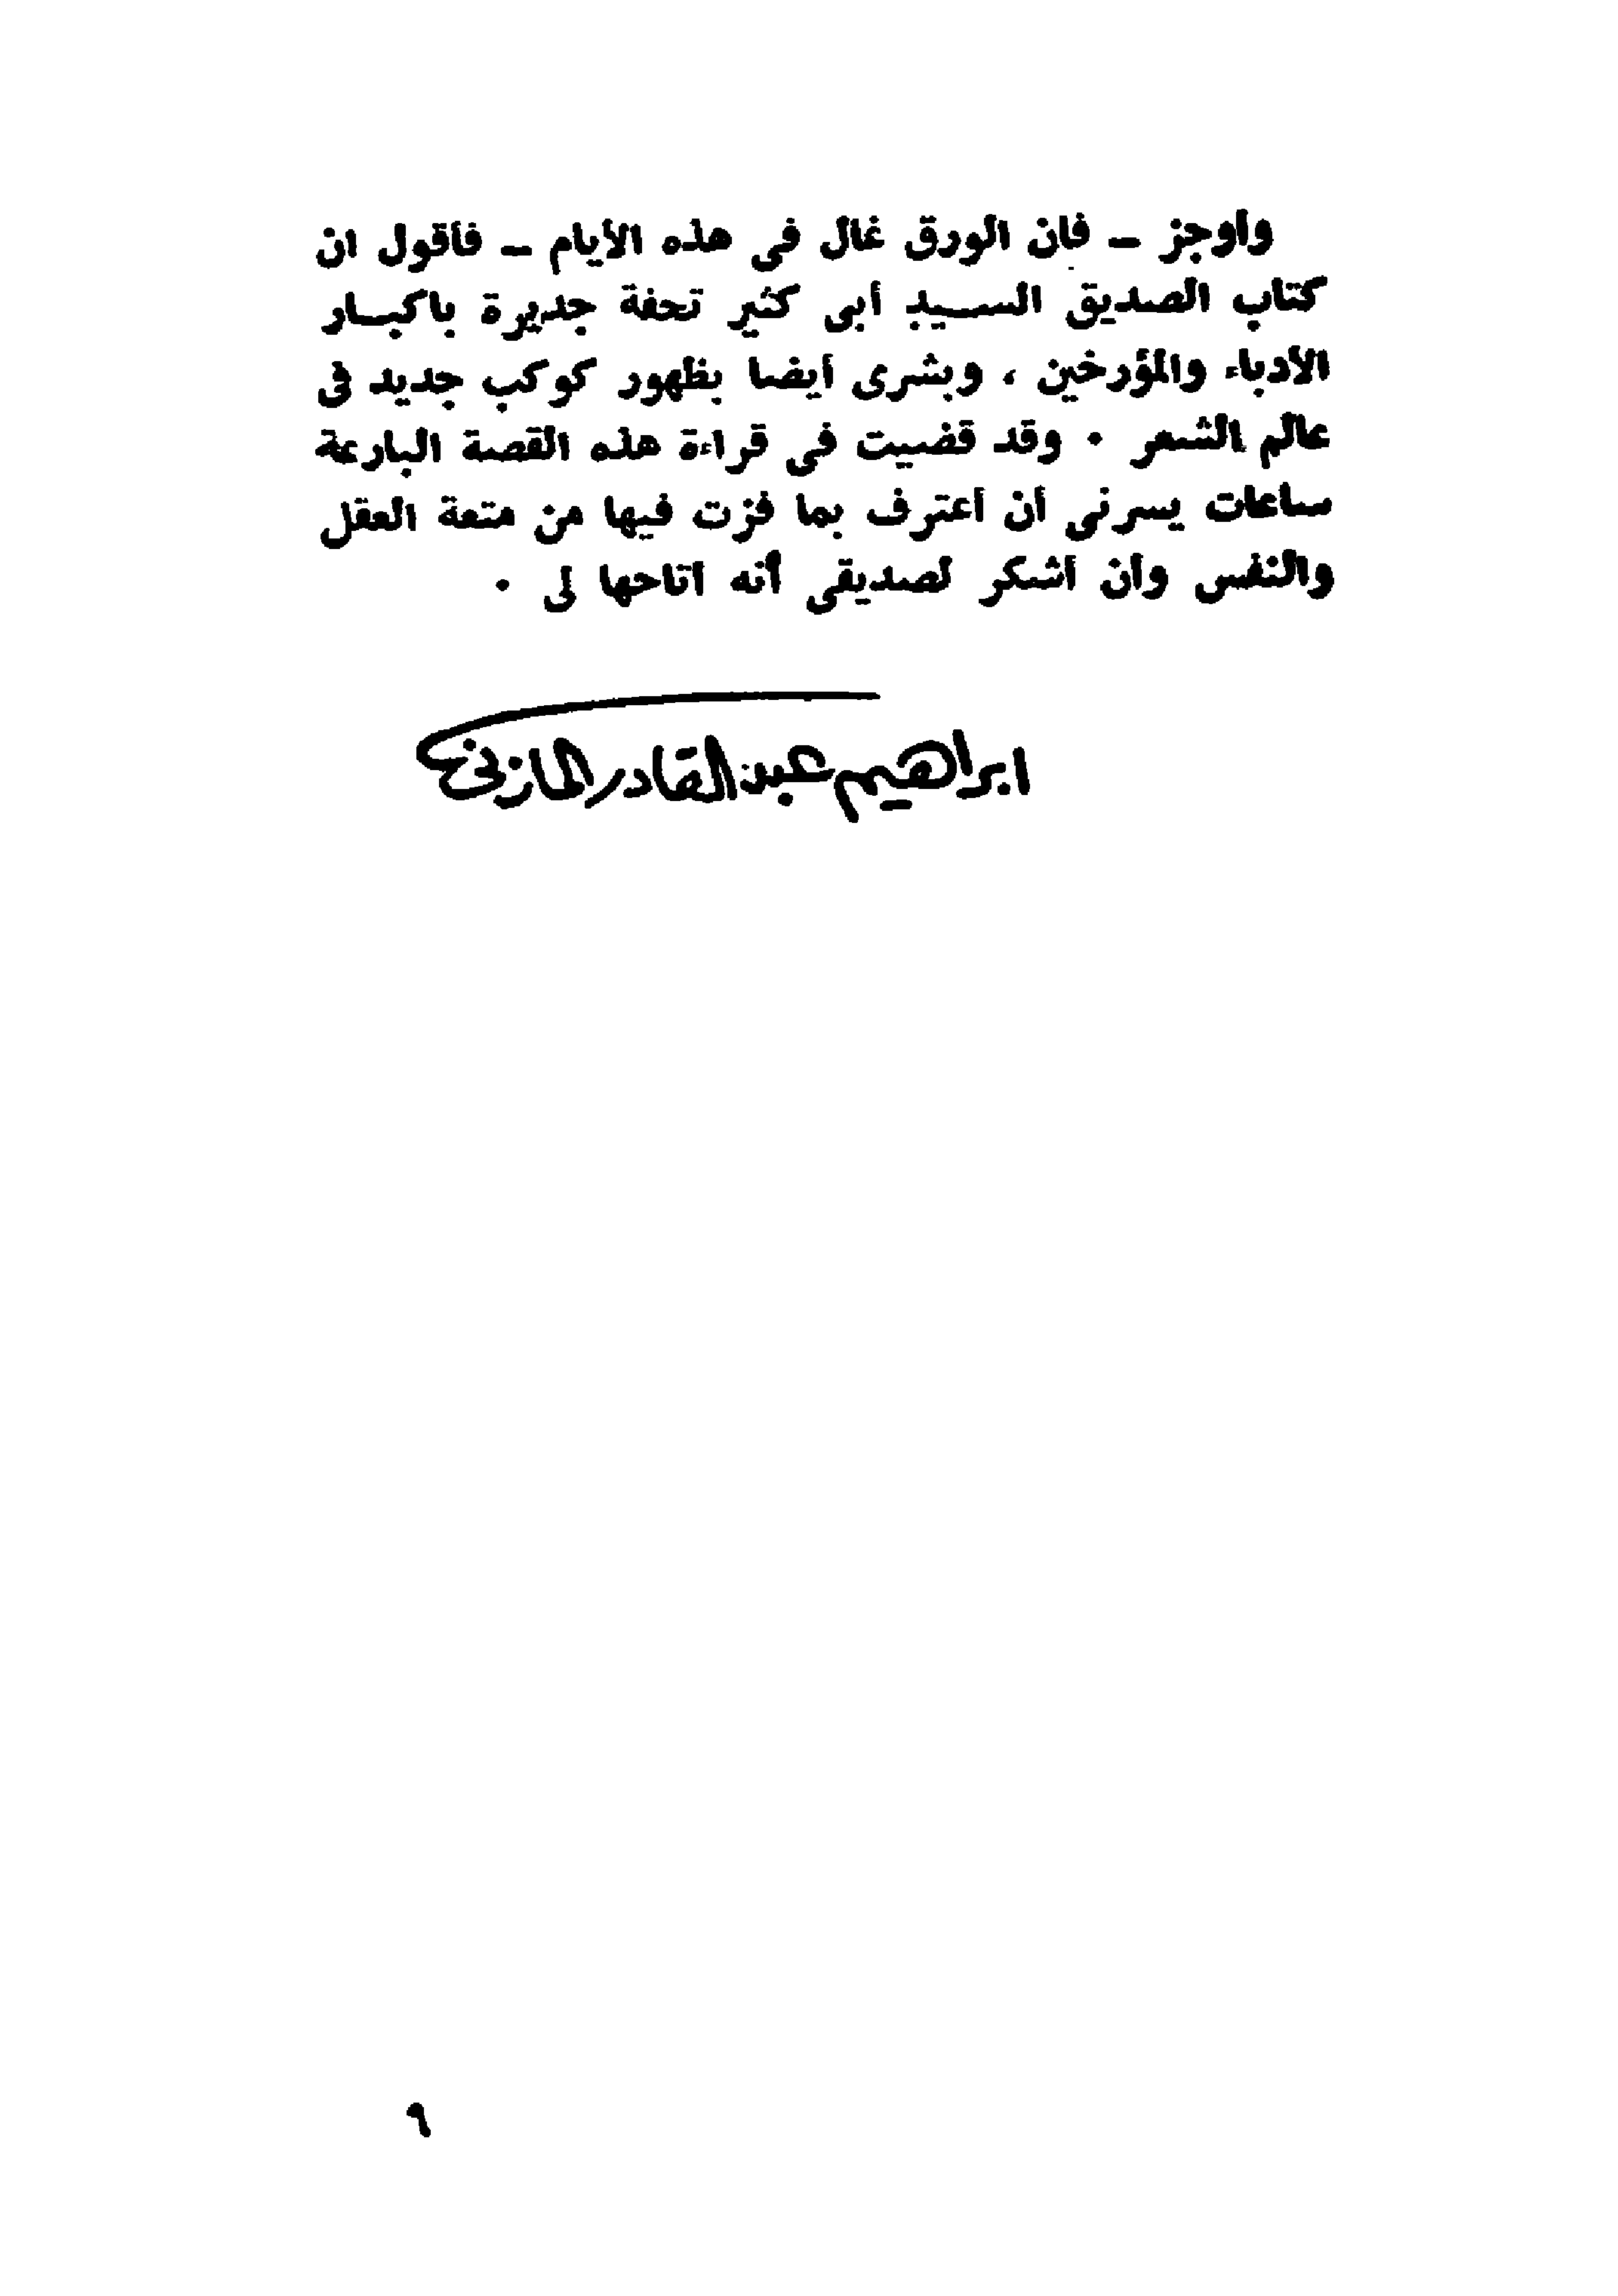 وأوجز ــ فان الورق غال فى هذه الأيام ــ فأقول ان
كتاب الصديق السيد أبى كثير تحفة جديرة باكبار
الأدباء والمؤرخين ، وبشرى أيضا بظهور كوكب جديد فى
عالم الشعر . وقد قضيت فى قراءة هذه القصة البارعة
ساعات يسرنى أن أعترف بما فزت فيها من متعة العقل
والنفس وأن أشكر لصديقى أنه أتاحها لى .
ابراهيم عبد القادر المازنى
٩